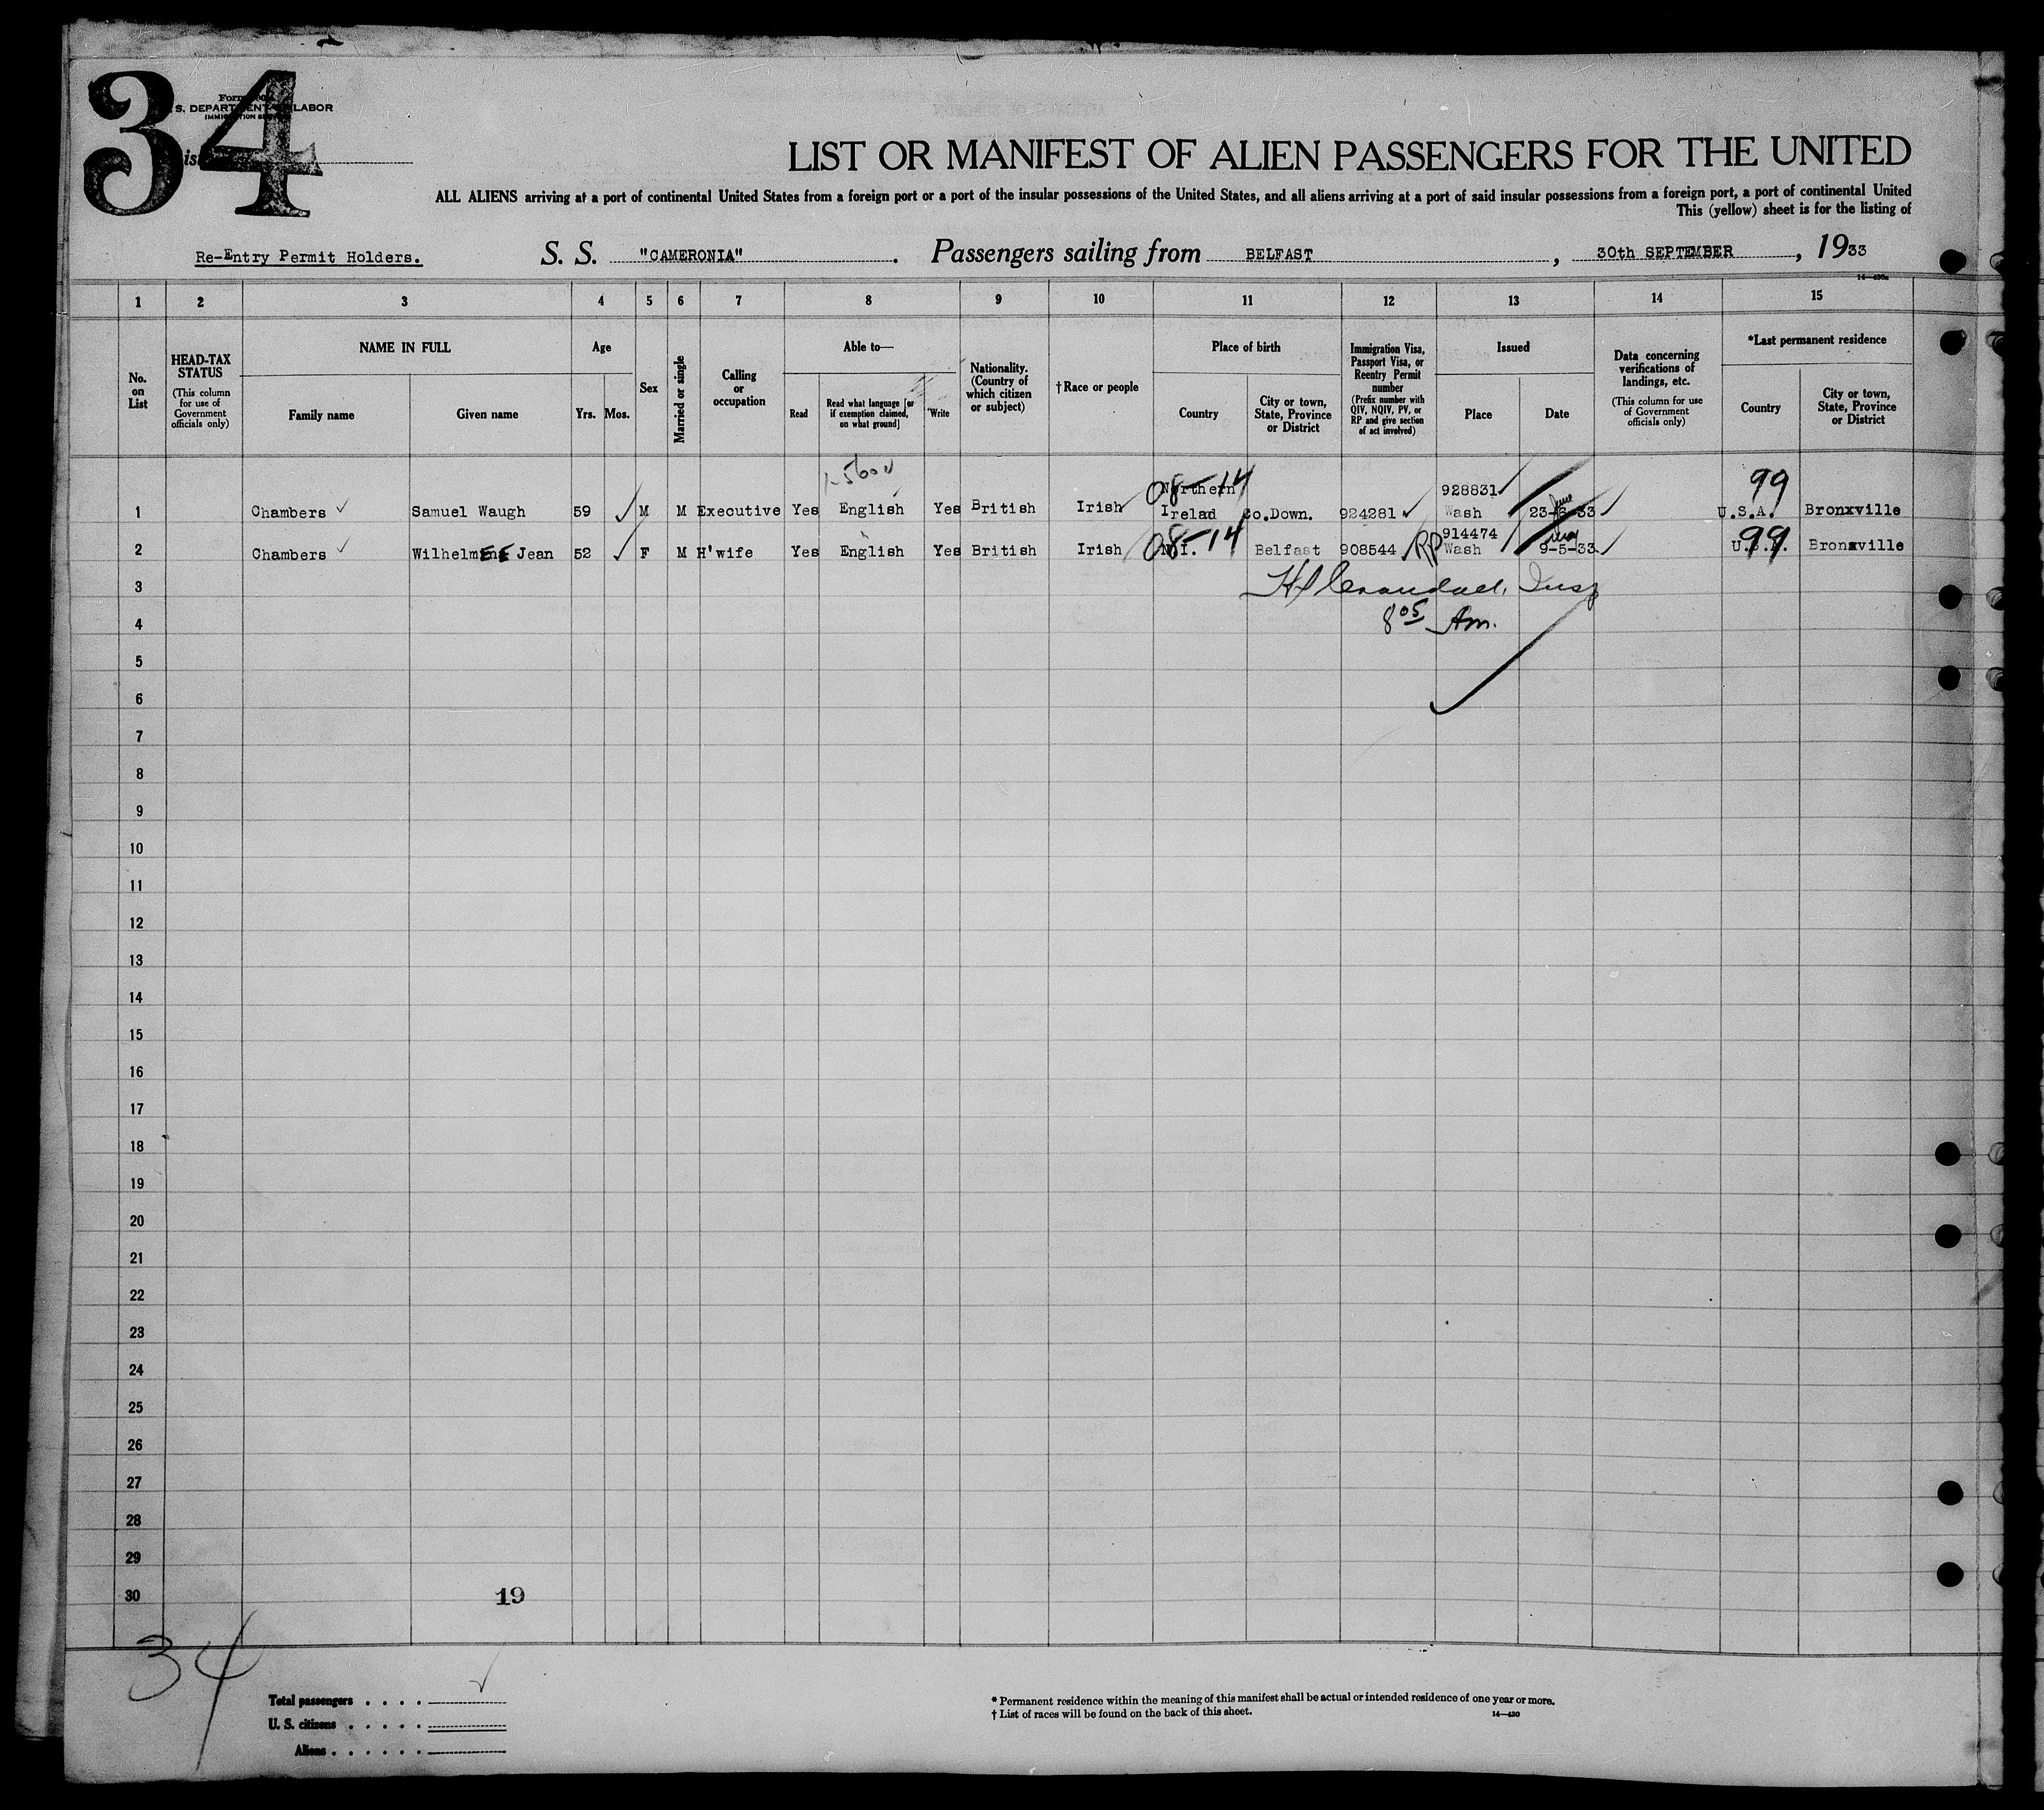 34
Form 500
U. S. DEPARTMENT OF LABOR
IMMIGRATION SERVICE
List
LIST OR MANIFEST OF ALIEN PASSENGERS FOR THE UNITED
ALL ALIENS arriving at a port of continental United States from a foreign port or a port of the insular possessions of the United States, and all aliens arriving at a port of said insular possessions from a foreign port, a port of continental United
This (yellow) sheet is for the listing of
Re-Entry Permit Holders. S. S. "CAMERONIA". Passengers sailing from BELFAST, 30th SEPTEMBER, 1933
14—430a
1 2 3 4 5 6 7 8 9 10 11 12 13 14 15
No. on List
HEAD-TAX STATUS (This column for use of Government officials only)
NAME IN FULL
Family name Given name
Age
Yrs. Mos.
Sex
Married or single
Calling or occupation
Able to—
Read Read what language [or if exemption claimed, on what ground] Write
Nationality. (Country of which citizen or subject)
† Race or people
Place of birth
Country City or town, State, Province or District
Immigration Visa, Passport Visa, or Reentry Permit number (Prefix number with QIV, NQIV, PV, or RP and give section of act involved)
Issued
Place Date
Data concerning verifications of landings, etc. (This column for use of Government officials only)
*Last permanent residence
Country City or town, State, Province or District
08-14 928831 June 99
1 Chambers Samuel Waugh 59 M M Executive Yes English Yes British Irish Northern Irelad Co.Down. 924281 Wash 23-6-33 U.S.A. Bronxville
08-14 RP 914474 May 99
2 Chambers WilhelmEnE Jean 52 F M H'wife Yes English Yes British Irish N.I. Belfast 908544 Wash 9-5-33 U.S.A. Bronxville
3 Insp
4 8 05 Am.
5
6
7
8
9
10
11
12
13
14
15
16
17
18
19
20
21
22
23
24
25
26
27
28
29
30 19
34
Total passengers . . . .
U. S. citizens . . . . .
Aliens . . . . . .
* Permanent residence within the meaning of this manifest shall be actual or intended residence of one year or more.
† List of races will be found on the back of this sheet. 14—430